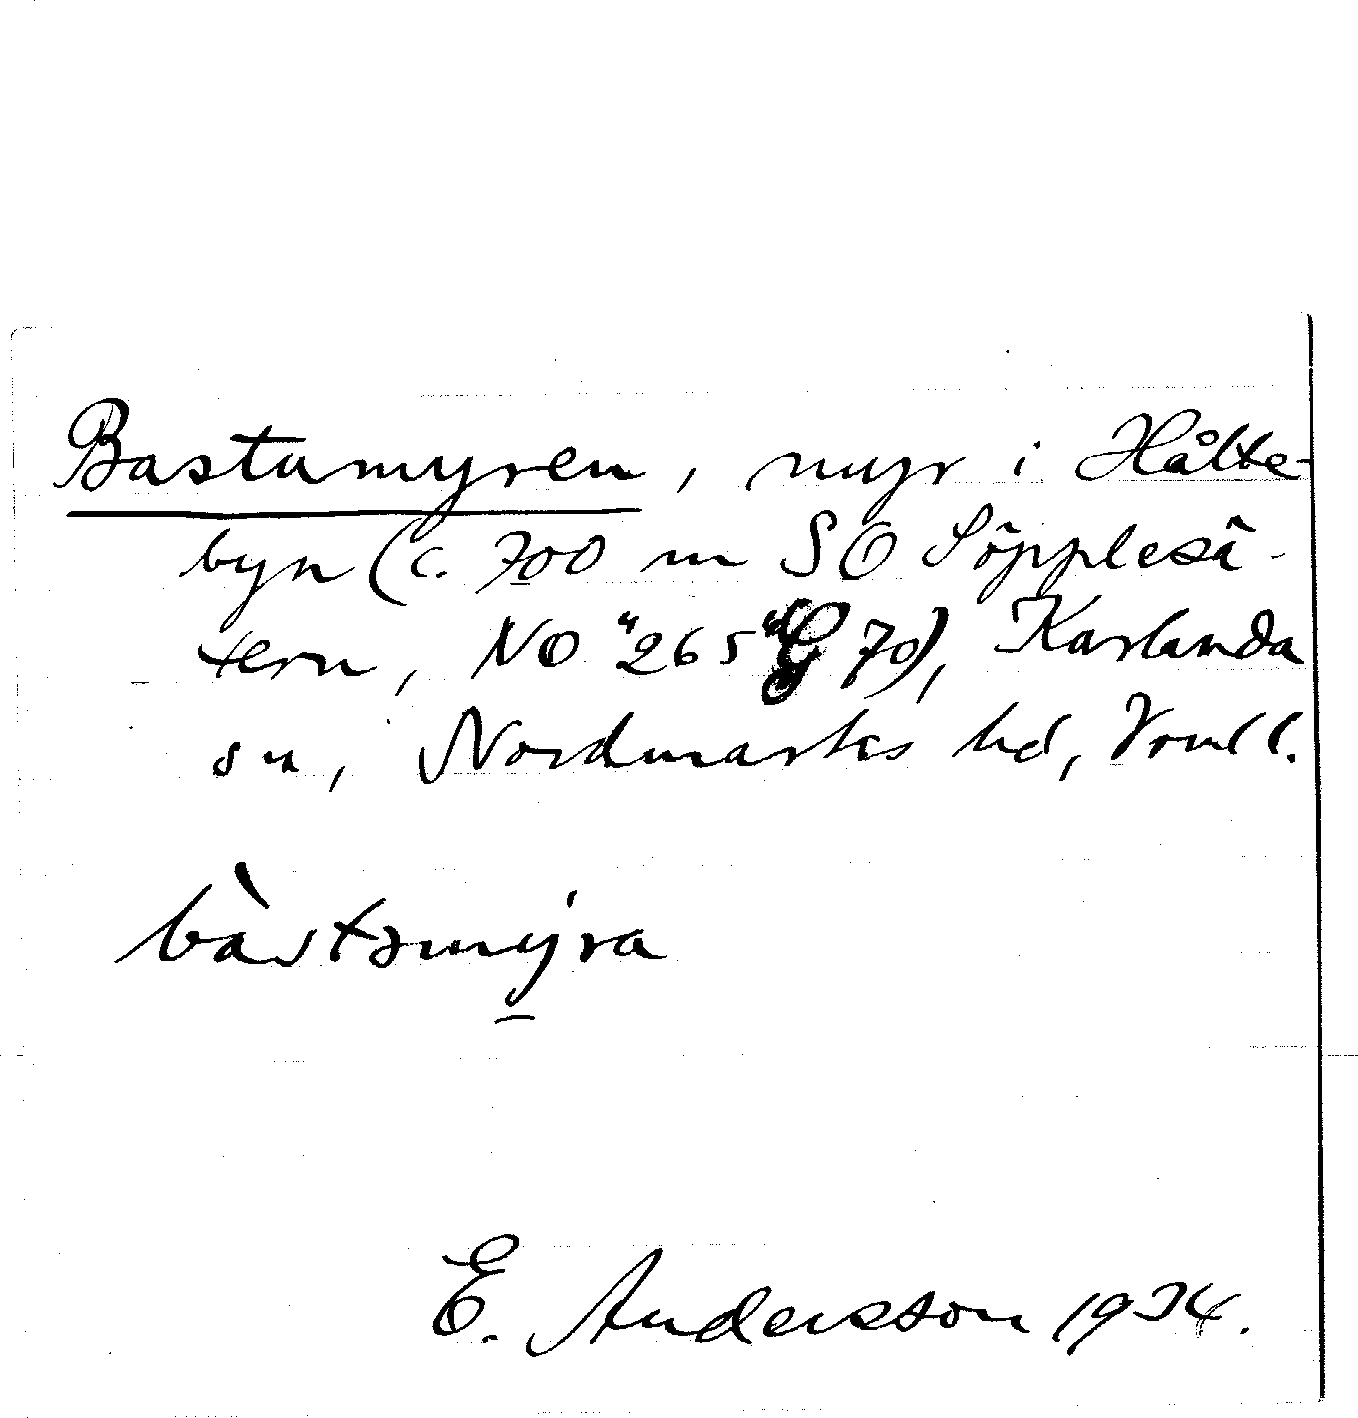 Bastumyren, myr i Hålte-
byn (c. 700 m SO Söpplesä-
tern, NO "265" G 70), Karlanda
sn, Nordmarks hd, Vrml l.
bàstəmý̱ra
E. Andersson 1934.